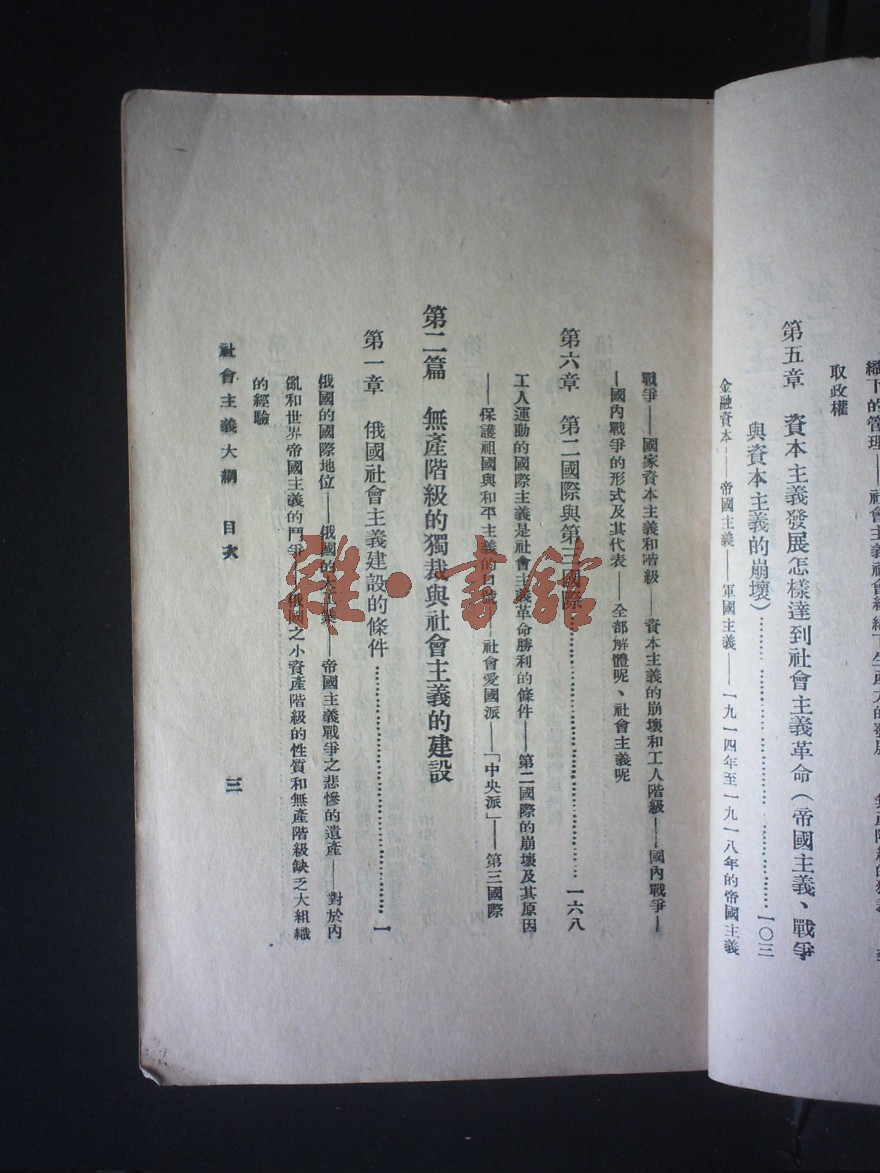 織下的管理——社會主義社會組織下生產力的發展
取政權
第五章　資本主義發展怎樣達到社會主義革命（帝國主義、戰爭
與資本主義的崩壞）…………………………一〇三
金融資本——帝國主義——軍國主義——一九一四年至一九一八年的帝國主義
戰爭——國家資本主義和階級——資本主義的崩壞和工人階級——國內戰爭—
—國內戰爭的形式及其代表——全部解體呢、社會主義呢
第六章　第二國際與第三國際…………………………一六八
工人運動的國際主義是社會主義革命勝利的條件——第二國際的崩壞及其原因
——保護祖國與和平主義的口號——社會愛國派——「中央派」——第三國際
第二篇　無產階級的獨裁與社會主義的建設
第一章　俄國社會主義建設的條件…………………………一
俄國的國際地位——俄國的大工業——帝國主義戰爭之悲慘的遺產——對於內
亂和世界帝國主義的鬥爭——俄國之小資產階級的性質和無產階級缺乏大組織
的經驗
社會主義大綱　目次
三
雜·書館